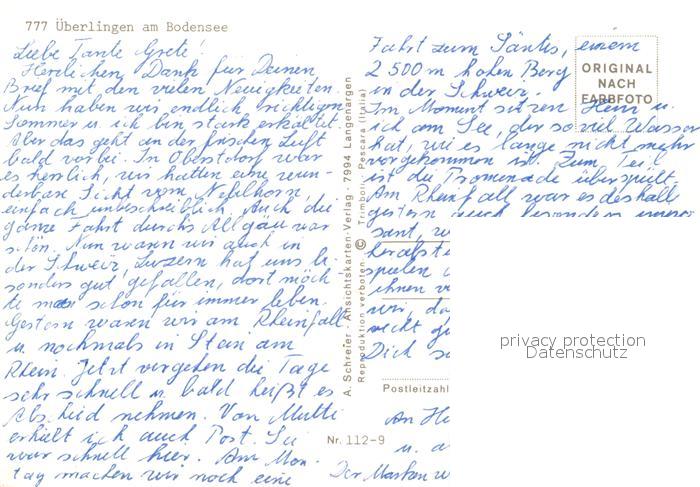 777 Überlingen am Bodensee
Liebe Tante Grete!
Herlichen Dank für Deinen
Brief mit den vielen Neuigkeiten.
Nun haben wir endlich richtigen
Sommer u. ich bin stark erkältet.
Aber das geht an der frischen Luft
bald vorbei. In Oberstdorf war
es herrlich, wir hatten eine wun-
derbare Sicht vom Nebelhorn,
einfach unbeschreiblich. Auch die
ganze Fahrt durchs Allgäu war
schön. Nun waren wir auch in
der Schweiz, Luzern hat uns be-
sonders gut gefallen, dort möch
te man schon für immer leben.
Gestern waren wir am Rheinfall
u. nochmals in Stein am
Rhein. Jetzt vergehen die Tage
sehr schnell u. bald heißt es
Abschied nehmen. Von Mutti
erhielt ich auch Post. Sie
war schnell hier. Am Mon-
tag machen wir noch eine
A. Schreier · Ansichtskarten-Verlag · 7994 Langenargen
Reproduktion verboten · © Trimboli, Pescara (Italia)
Nr. 112-9
Fahrt zum Säntis, einem
2500 m hohen Berg
in der Schweiz.
Im Moment sitzen Heiz u.
ich am See, der so viel Wasser
hat, wie es lange nicht mehr
vorgekommen ist. Zum Teil
ist die Promenade überspült.
Am Rheinfall war es deshalb
gestern auch besonders interes
sant, w
herabstü
spielen
ihnen v
wir, da
recht g
Dich s
ORIGINAL
NACH
FARBFOTO
privacy protection
Datenschutz
Postleitzahl
An He
u. a
Der Marken w